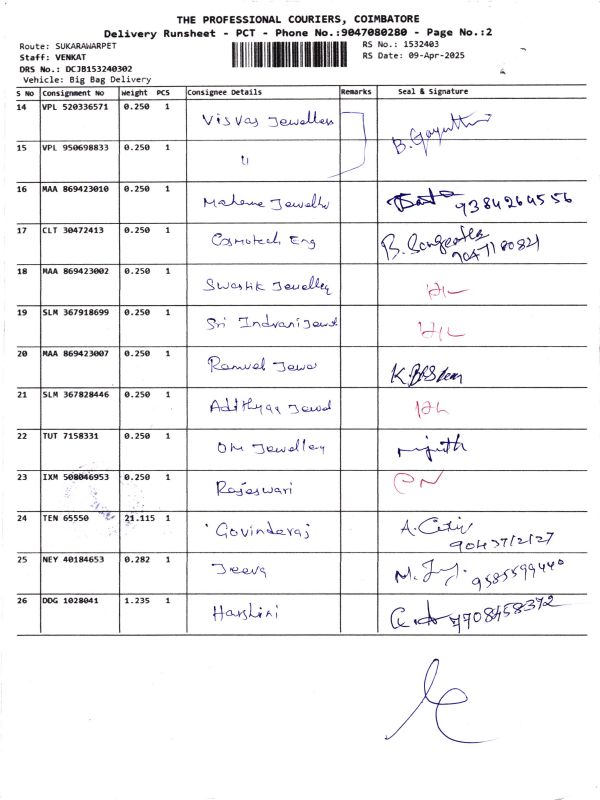 THE PROFESSIONAL COURIERS, COIMBATORE
Delivery Runsheet - PCT - Phone No.:9047080280 - Page No.:2
Route: SUKARAWARPET
RS No.: 1532403
Staff: VENKAT
RS Date: 09-Apr-2025
DRS No.: DCJB153240302
Vehicle: Big Bag Delivery
S No Consignment No Weight PCS Consignee Details Remarks Seal & Signature
14 VPL 520336571 0.250 1 Visvas Jewellers
15 VPL 950698833 0.250 1 "
16 MAA 869423010 0.250 1 9384264556
17 CLT 30472413 0.250 1 Cosmotech Eng B.
18 MAA 869423002 0.250 1 Swastik Jewelley
19 SLM 367918699 0.250 1 Sri Indrani Jewel
20 MAA 869423007 0.250 1 Jewe K.
21 SLM 367828446 0.250 1 Jewel
22 TUT 7158331 0.250 1 OM Jewelley
23 IXM 508046953 0.250 1 Rajeswari
24 TEN 65550 21.115 1 Govinderaj A.
9043712127
25 NEY 40184653 0.282 1 Jeeva M. 9585599440
26 DDG 1028041 1.235 1 Harshini 7708458372